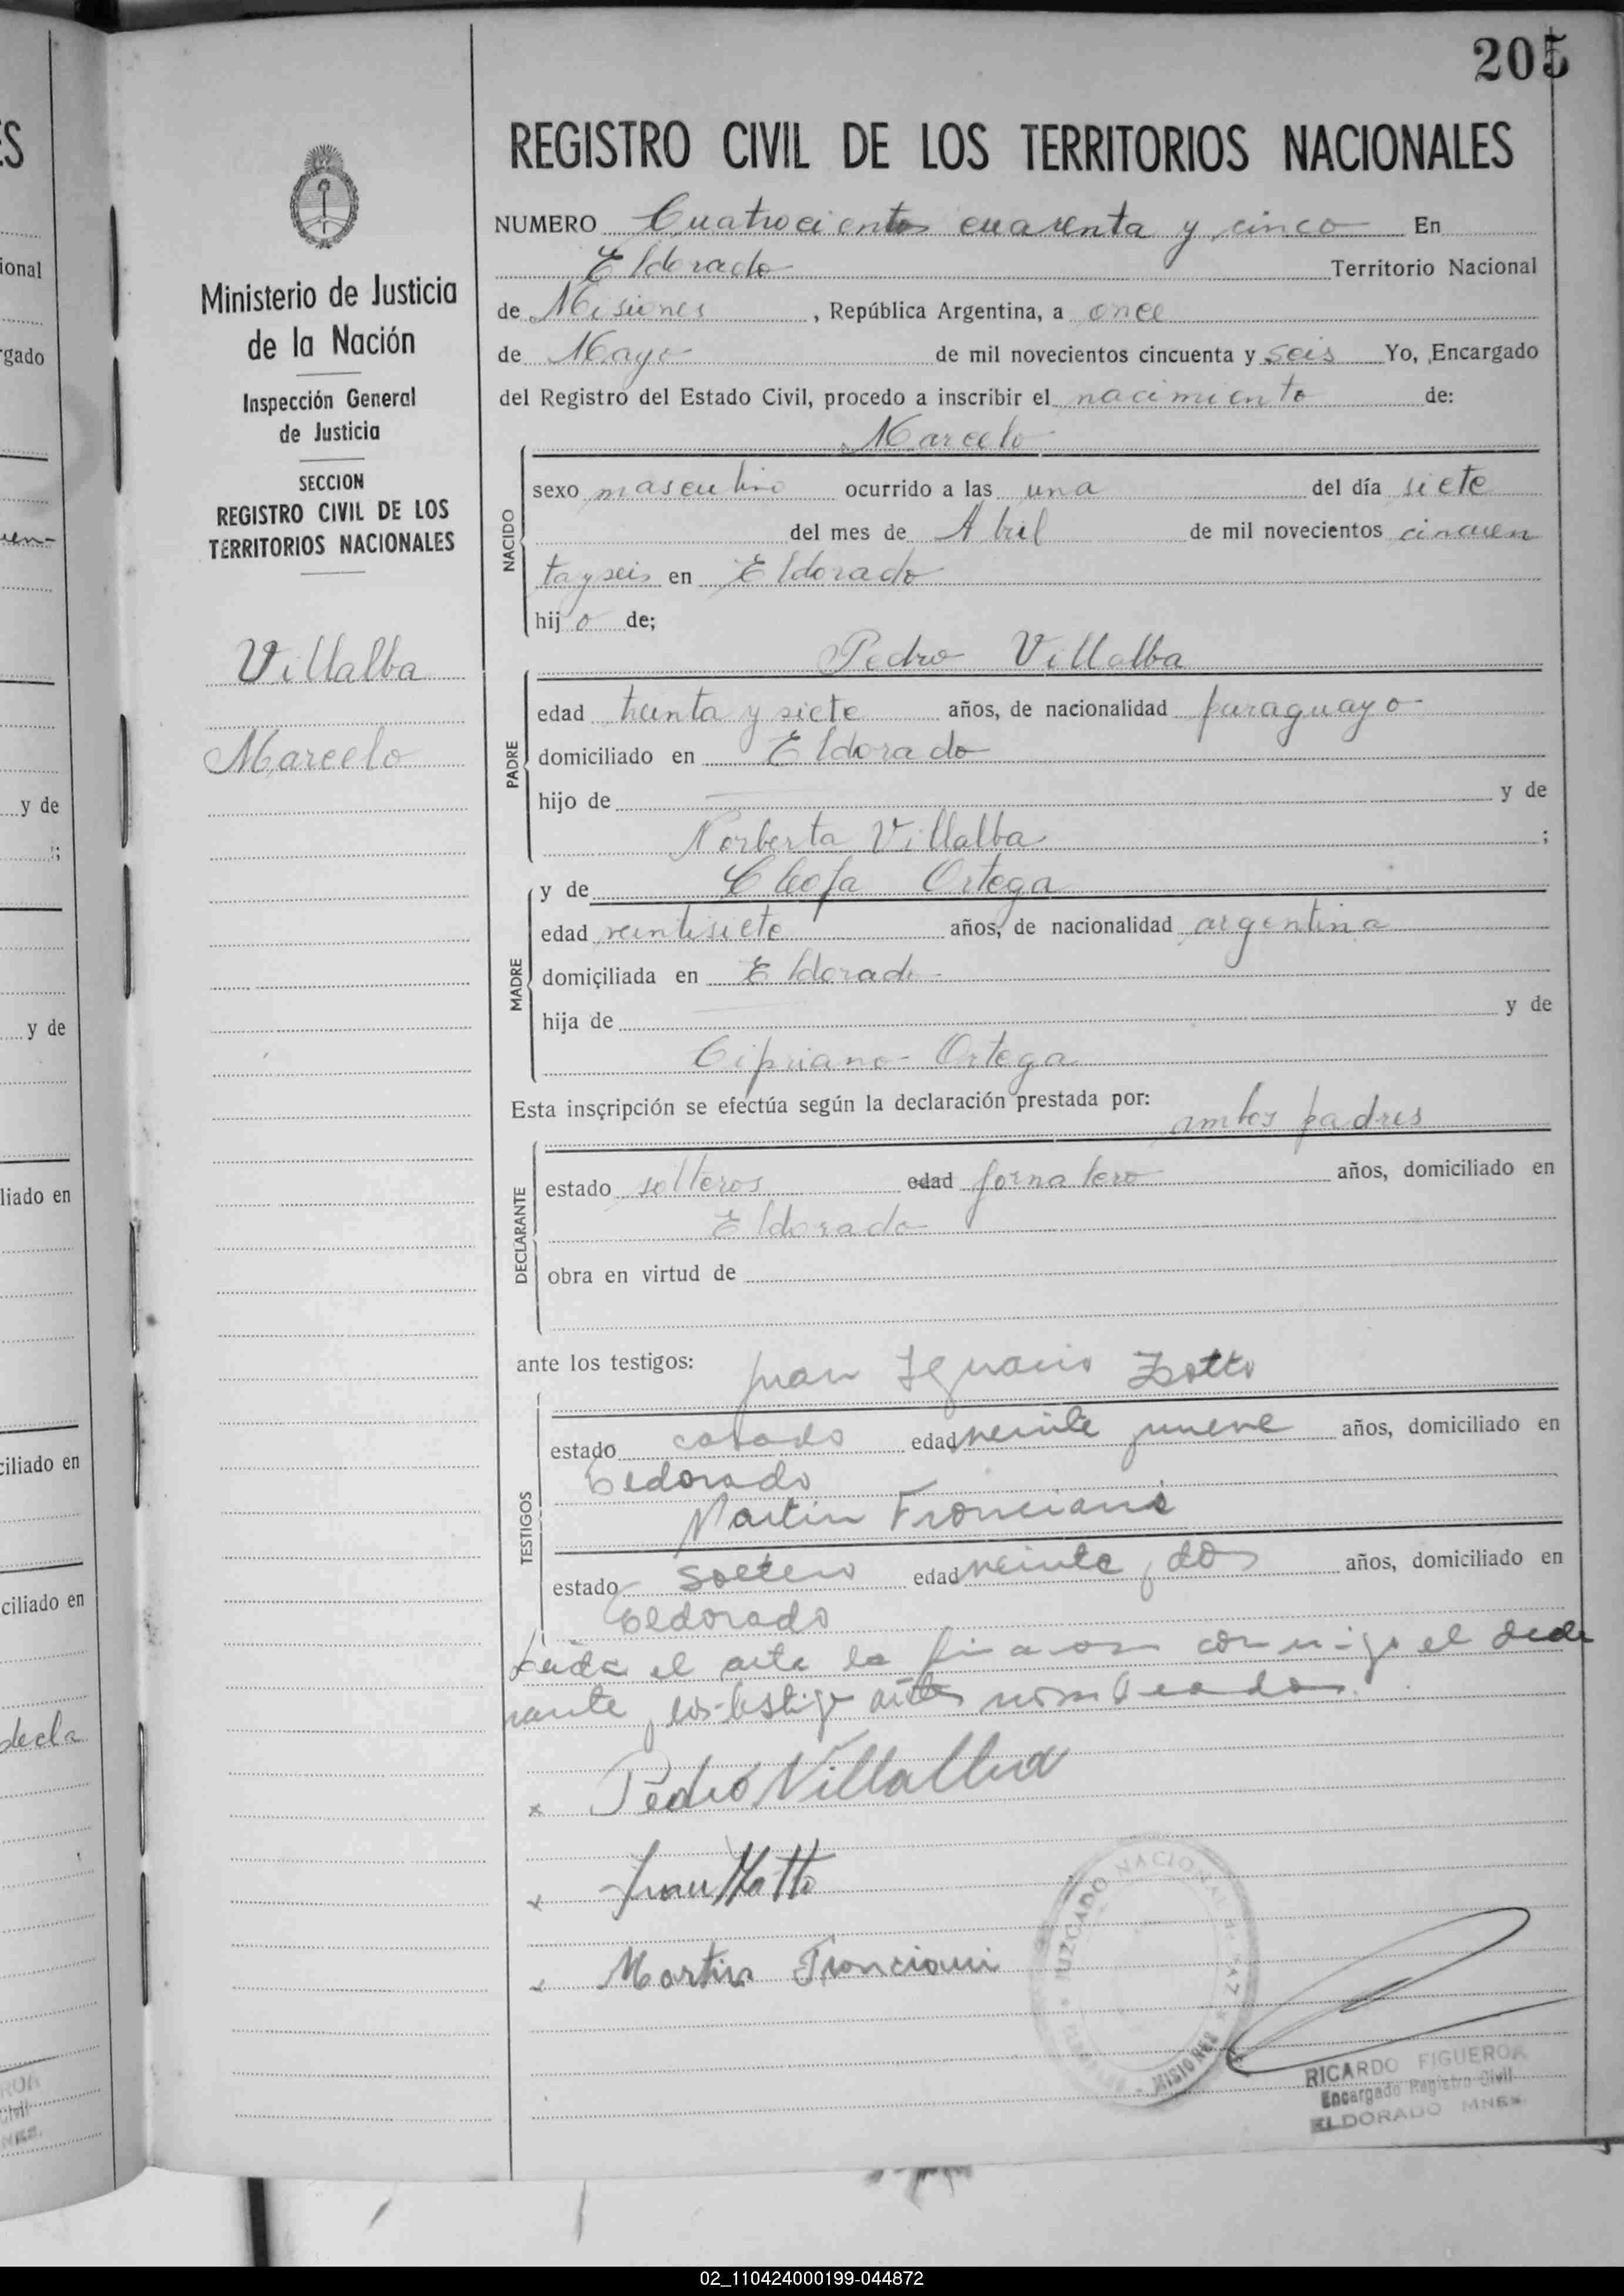 205
REGISTRO CIVIL DE LOS TERRITORIOS NACIONALES
Ministerio de Justicia
de la Nación
Inspección General
de Justicia
SECCION
REGISTRO CIVIL DE LOS
TERRITORIOS NACIONALES
Villalba
Marcelo
NUMERO Cuatrocientos cuarenta y cinco En
Eldorado Territorio Nacional
de Misiones, República Argentina, a once
de Mayo de mil novecientos cincuenta y seis Yo, Encargado
del Registro del Estado Civil, procedo a inscribir el nacimiento de:
Marcelo
NACIDO
sexo masculino ocurrido a las una del día siete
del mes de Abril de mil novecientos cincuen
ta y seis en Eldorado
hijo de;
Pedro Villalba
PADRE
edad treinta y siete años, de nacionalidad paraguayo
domiciliado en Eldorado
hijo de y de
Norberta Villalba ;
y de Cleofa Ortega
MADRE
edad veintisiete años, de nacionalidad argentina
domiciliada en Eldorado
hija de y de
Cipriano Ortega
Esta inscripción se efectúa según la declaración prestada por:
ambos padres
DECLARANTE
estado solteros edad jornalero años, domiciliado en
Eldorado
obra en virtud de
ante los testigos: Juan Ignacio
TESTIGOS
estado casado edad veinte y nueve años, domiciliado en
Eldorado
Martin Franciani
estado soltero edad veinte y dos años, domiciliado en
Eldorado
Leida el acta la firaron conmigo el decla
rante y los testigos antes nombrados.
x Pedro Villalba
x Juan
x Martin Franciani
JUZGADO NACIONAL DE PAZ
MISIONES
RICARDO FIGUEROA
Encargado Registro Civil
ELDORADO MNES.
ional
rgado
y de
y de
liado en
ciliado en
ciliado en
decla
02_110424000199-044872